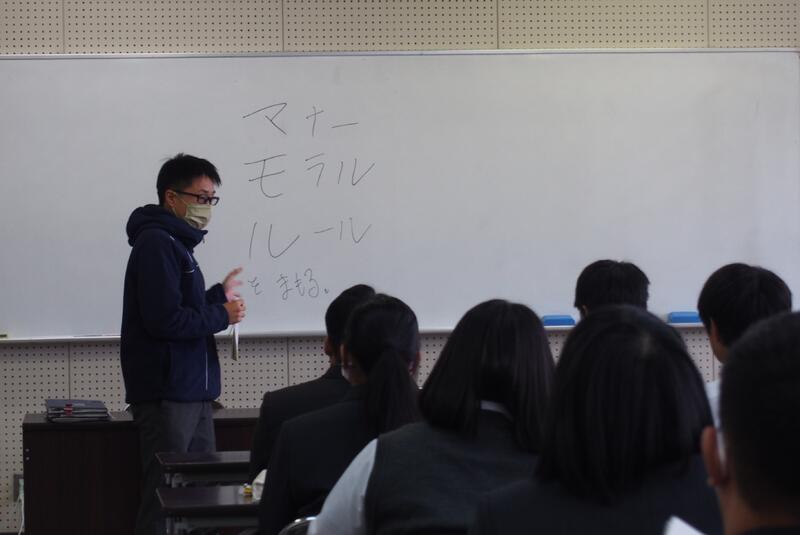 マナー
モラル
ルール
をまもる。